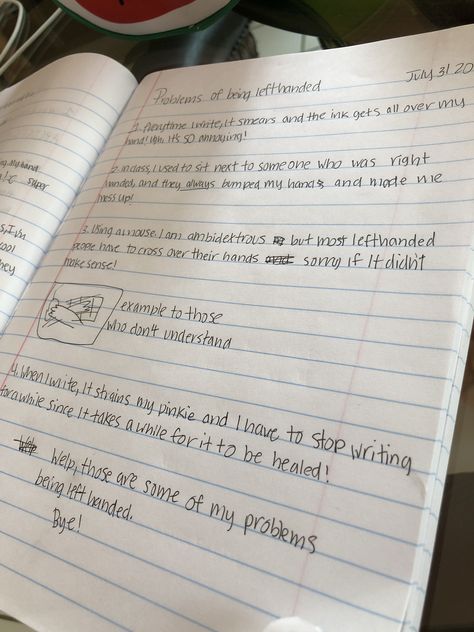 Problems of being lefthanded
July 31 20
1. Everytime I write, it smears and the ink gets all over my
hand! Ugh, it's SO annoying!
2. In class, I used to sit next to someone who was right
handed, and they always bumped my hands, and made me
mess up!
3. Using a mouse. I am ambidextrous but most lefthanded
people have to cross over their hands sorry if it didn't
make sense!
example to those
who don't understand
4. When I write, it strains my pinkie and I have to stop writing
for a while since it takes a while for it to be healed!
Welp, those are some of my problems
being left handed.
Bye!